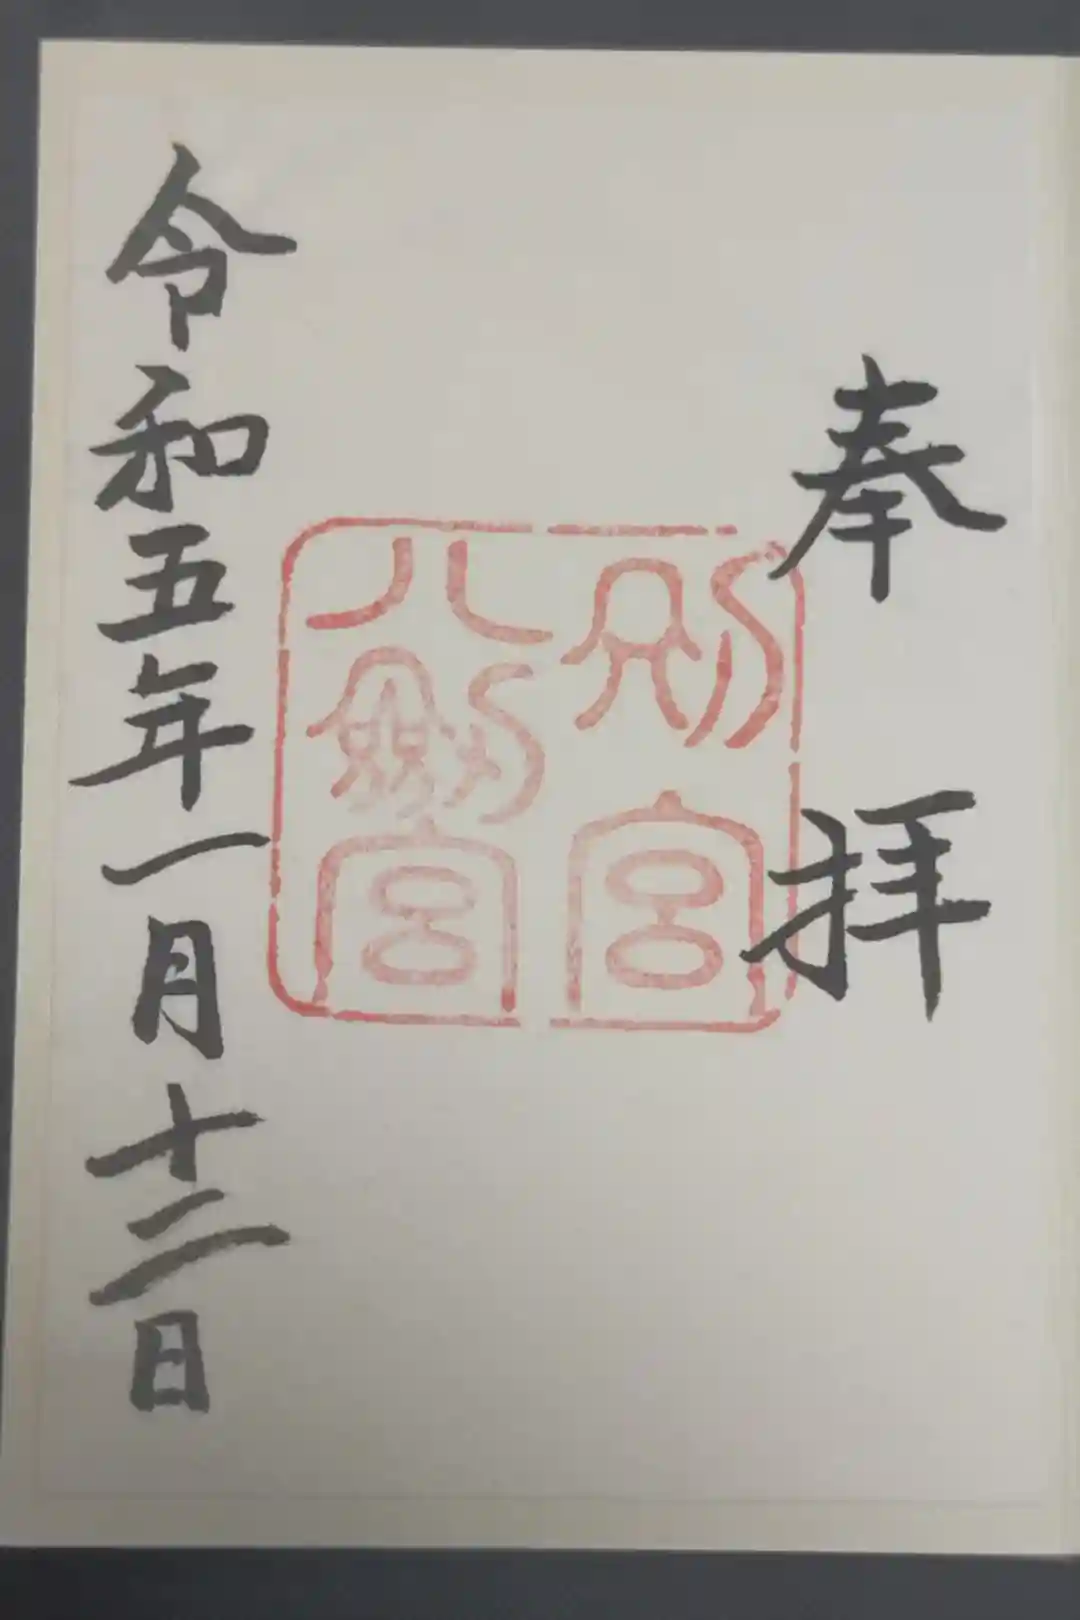 奉拝
別宮
八劔宮
令和五年一月十二日